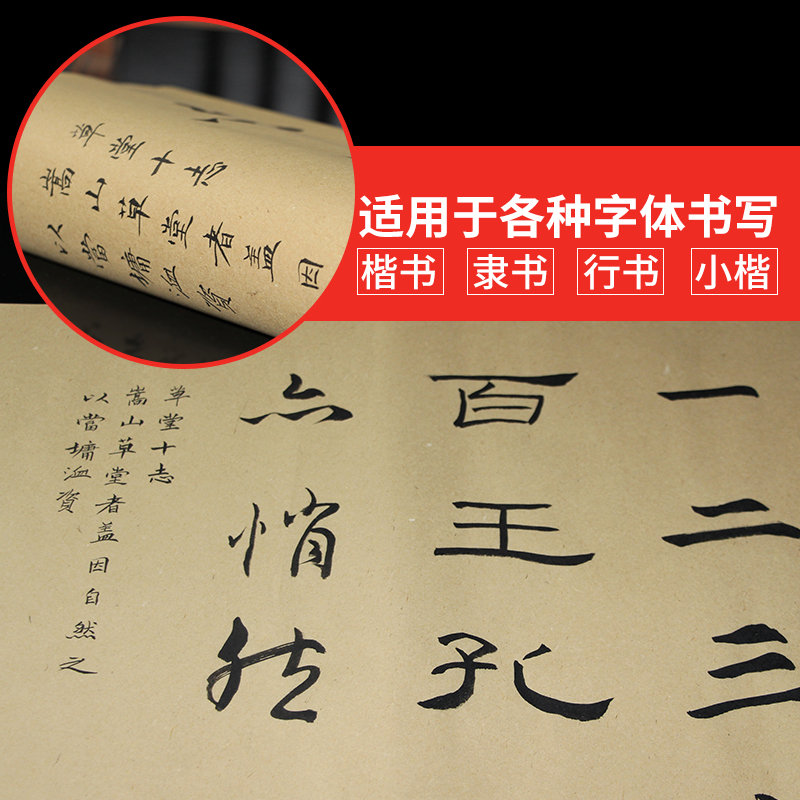 适用于各种字体书写
楷书 隶书 行书 小楷
草堂十志
嵩山草堂者盖因
以當墉洫資
一二三
百王孔
亦悄然
草堂十志
嵩山草堂者盖因自然之
以當墉洫資